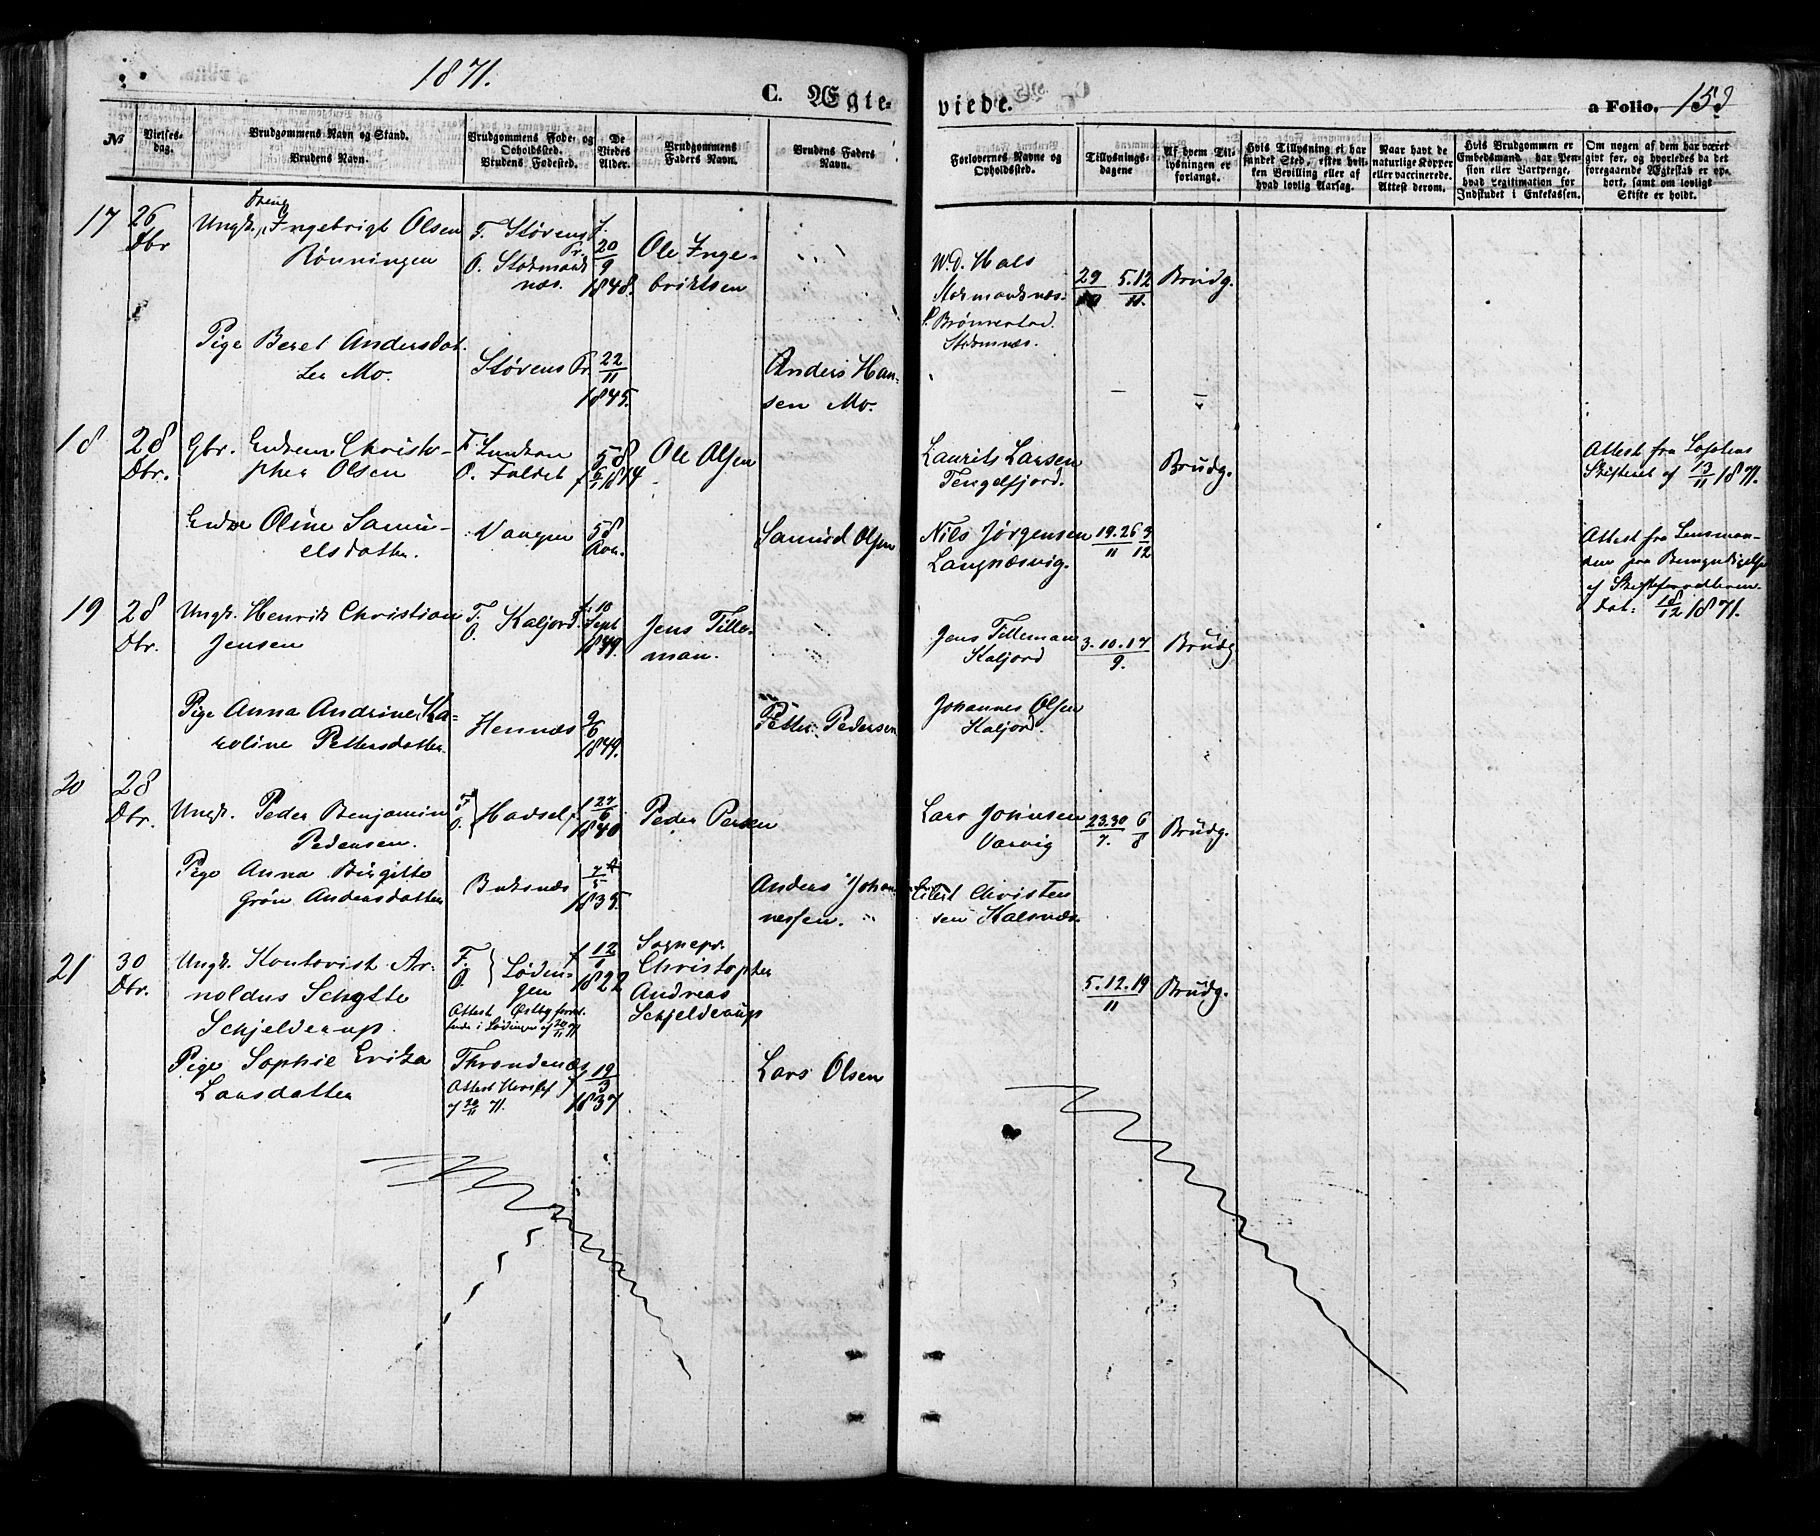 1871.
C. Ægte-
viede.
a Folio. 153
№
Vielses-
dag.
Brudgommens Navn og Stand.
Brudens Navn.
Brudgommens Føde- og
Opholdssted.
Brudens Fødested.
De
Viedes
Alder.
Brudgommens
Faders Navn.
Brudens Faders
Navn.
Forlovernes Navne og
Opholdssted.
Tillysnings-
dagene
Af hvem Til-
lysningen er
forlangt.
Hvis Tillysning ei har
fundet Sted, efter hvil-
ken Bevilling eller af
hvad lovlig Aarsag.
Naar havt de
naturlige Kopper
eller vaccinerede.
Attest derom.
Hvis Brudgommen er
Embedsmand, har Pen-
sion eller Vartpenge,
hvad Legitimation for
Indskudet i Enkekassen.
Om nogen af dem har været
gift før, og hvorledes da det
foregaaende Ægteskab er op-
hørt, samt om lovligt
Skifte er holdt.
17
26
Dbr
Ungk. Ingebrigt Olsen
Rönningen
F. Störens
Pr.
O. Stokmark
næs.
f.
20
9
1848.
Ole Inge-
briktsen
W.D. Hals
Stokmarknæs.
29 5.12
11.
Brudg.
Pige Beret Andersdat-
ter Mo.
Störens Pr.
22
11
1845.
Anders Han-
sen Mo.
18
28
Dbr.
Gbr. Enkem Christo-
pher Olsen
F.
O. Faldet
58
1814
Ole Olsen
Laurits Larsen
Tengelfjord.
Brudg.
Attest fra Lofotens
Skifteret af 13/11 1871.
Enke Oline Samu-
elsdatter.
Vaagen
58
Aar.
Samuel Olsen
Nils Jørgensen
Langnæsvig.
19.26 3
11 12
Attest fra Lensman-
den paa Bemyndigelse
af Skifteforvalteren
Dat: 18/12 1871.
19
28
Dbr.
Ungk. Henrik Christian
Jensen
F.
O. Kaljord.
f. 10
Sept
1849.
Jens Tille-
man.
Jens Tilleman
Kaljord
3.10.17
9.
Brudg
Pige Anna Andrine Ka-
roline Pettersdatter.
Hennæs
9
6
1849.
Petter Pedersen
Johannes Olsen
Kaljord.
20
28
Dbr.
Ungk. Peder Benjamin
Pedersen.
F.
O. Hadsel
f. 27
6
1840
Peder Persen
Lars Johnsen
Varvig
23.30 6
7. 8
Brudg.
Pige Anna Birgitte
Grön Andersdatter
Buksnæs
5
1835.
Anders Johan-
nessen.
Eilert Christen
sen Kalsnæs.
21
30
Dbr.
Ungk. Kontovist Ar-
noldus Schytte
Schjelderup.
F.
O. Lødin-
gen
Attest
i Lødingen af 20/11 71
f 12
1822
Sognepr.
Christopher
Andreas
Schjelderup
5.12.19
11
Brudg.
Pige Sophie Erika
Larsdatter
Throndenæs
Attest
af 20/11 71.
f 19
3
1837
Lars Olsen